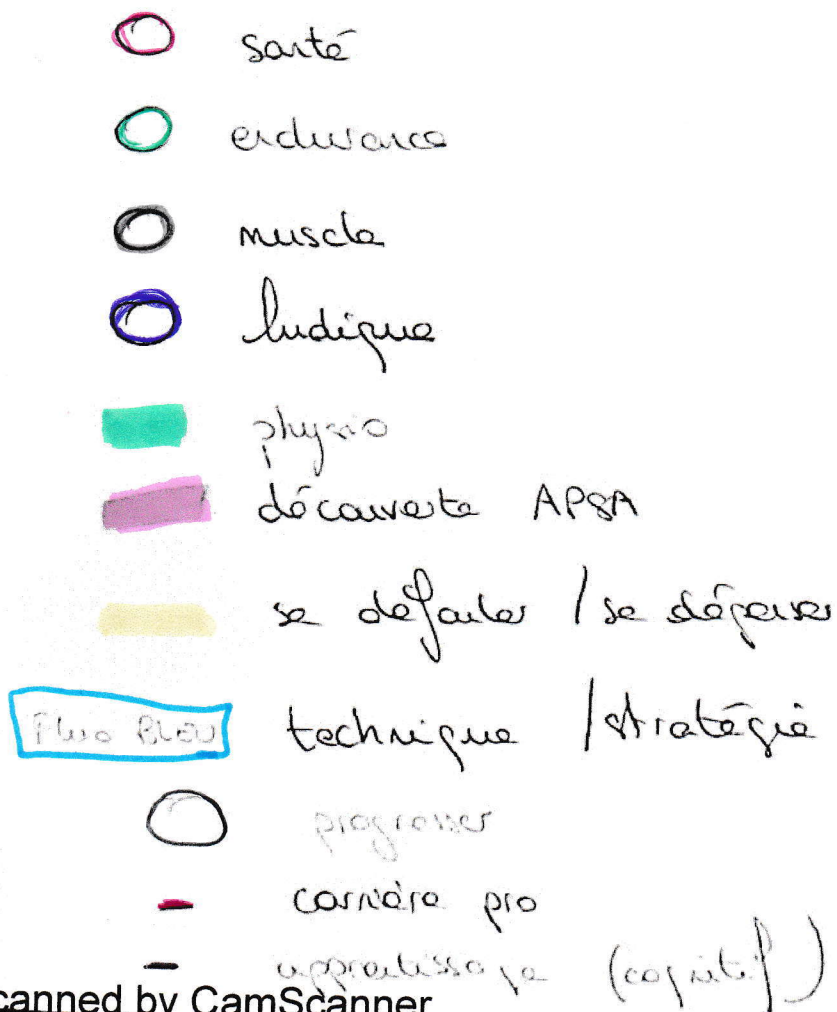 santé
endurance
muscle
ludique
physio
découverte APSA
se défouler / se dépenser
Fluo BLEU technique / stratégie
progresser
carrière pro
apprentissage (cognitif)
canned by CamScanner